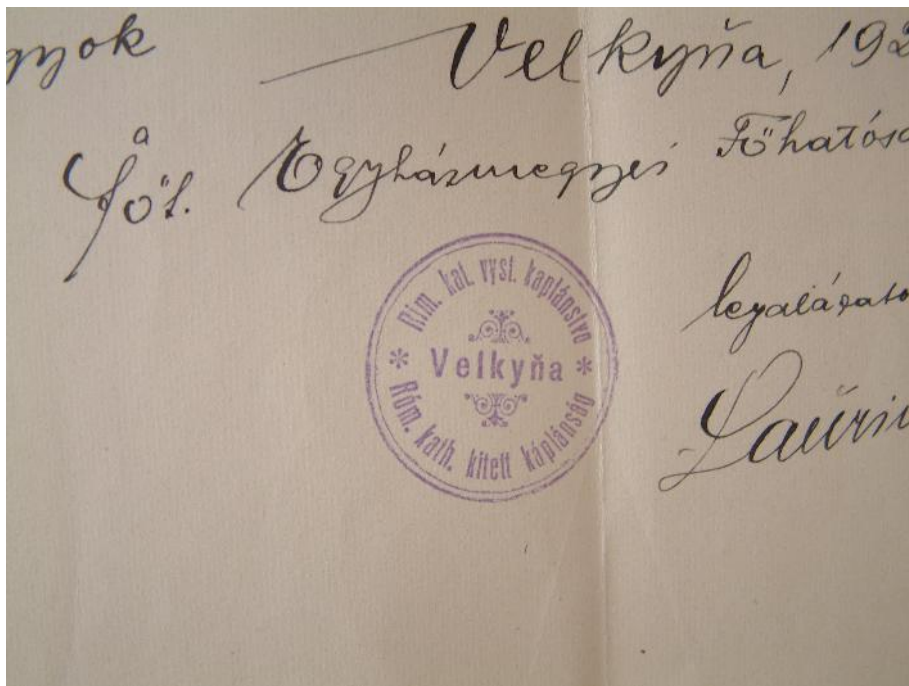 gyok
Velkyňa, 192
a
Főt. Egyházmegyei Főhatósá
legalázato
Rim. kat. vyst. kaplánstvo
* Velkyňa *
Róm. kath. kitett káplánság